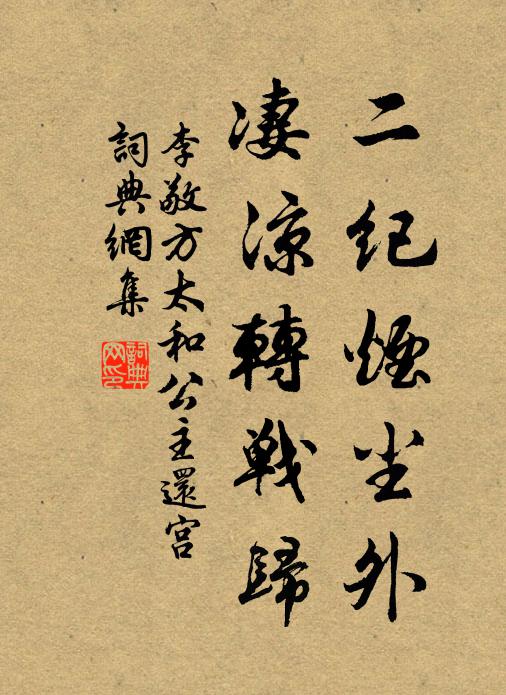 二紀煙尘外
凄涼轉戦歸
李敬方太和公主還宮
詞典網集
詞典网印